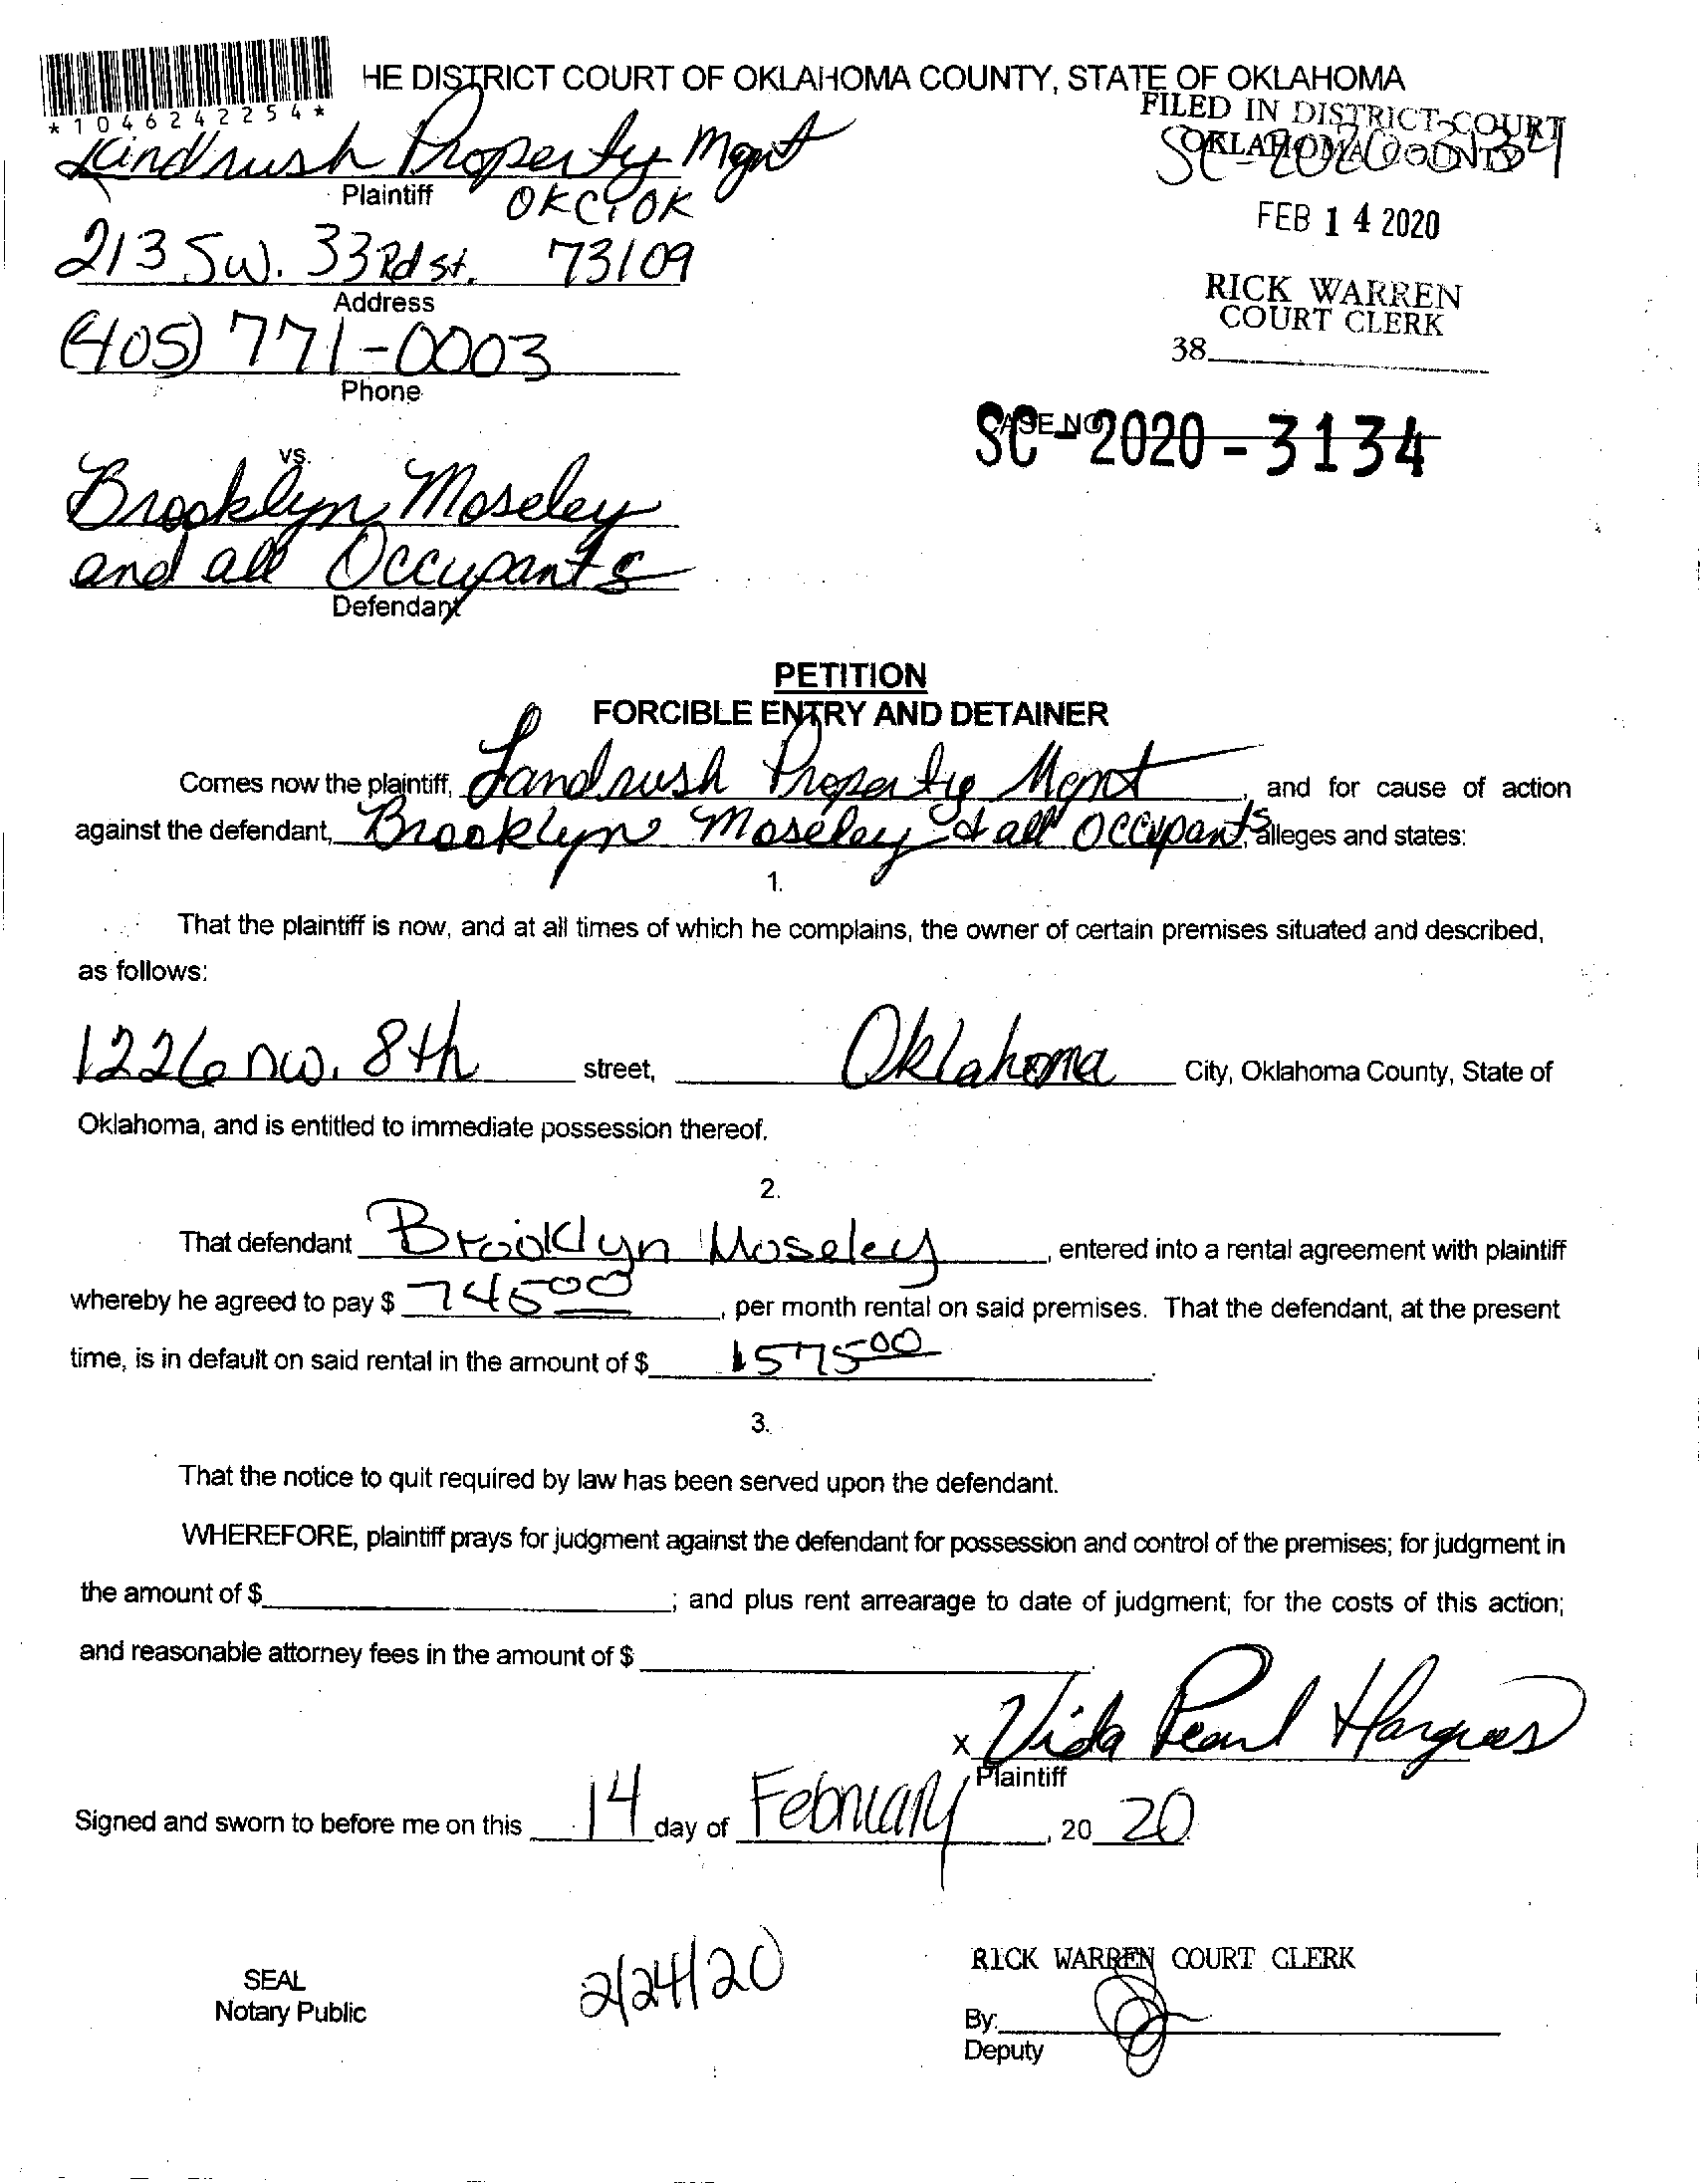 HE DISTRICT COURT OF OKLAHOMA COUNTY, STATE OF OKLAHOMA
*1046242254*
FILED IN DISTRICT COURT
OKLAHOMA COUNTY
SC-2020-3134
Landrush Property Mgmt
Plaintiff
OKC, OK
FEB 14 2020
213 SW. 33Rd St. 73109
Address
RICK WARREN
COURT CLERK
(405) 771-0003
Phone
38
CASE NO
SC-2020-3134
vs.
Brooklyn Moseley
and all Occupants
Defendant
PETITION
FORCIBLE ENTRY AND DETAINER
Comes now the plaintiff, Landrush Property Mgmt, and for cause of action
against the defendant, Brooklyn Moseley & all Occupants, alleges and states:
1.
That the plaintiff is now, and at all times of which he complains, the owner of certain premises situated and described,
as follows:
1226 NW. 8th street, Oklahoma City, Oklahoma County, State of
Oklahoma, and is entitled to immediate possession thereof.
2.
That defendant Brooklyn Moseley, entered into a rental agreement with plaintiff
whereby he agreed to pay $ 745 00, per month rental on said premises. That the defendant, at the present
time, is in default on said rental in the amount of $ 1575 00.
3.
That the notice to quit required by law has been served upon the defendant.
WHEREFORE, plaintiff prays for judgment against the defendant for possession and control of the premises; for judgment in
the amount of $; and plus rent arrearage to date of judgment; for the costs of this action;
and reasonable attorney fees in the amount of $.
x Vida Pearl
Plaintiff
Signed and sworn to before me on this 14 day of February, 20 20.
SEAL
Notary Public
2/24/20
RICK WARREN COURT CLERK
By:
Deputy